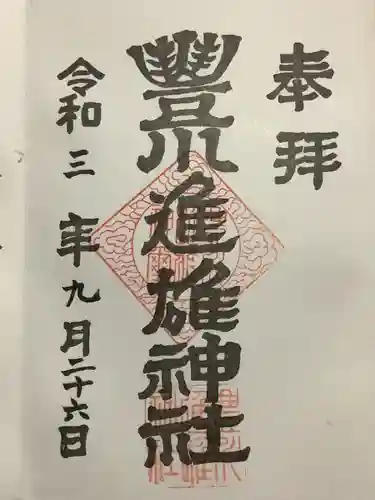 奉拝
豊川進雄神社
令和三年九月二十六日